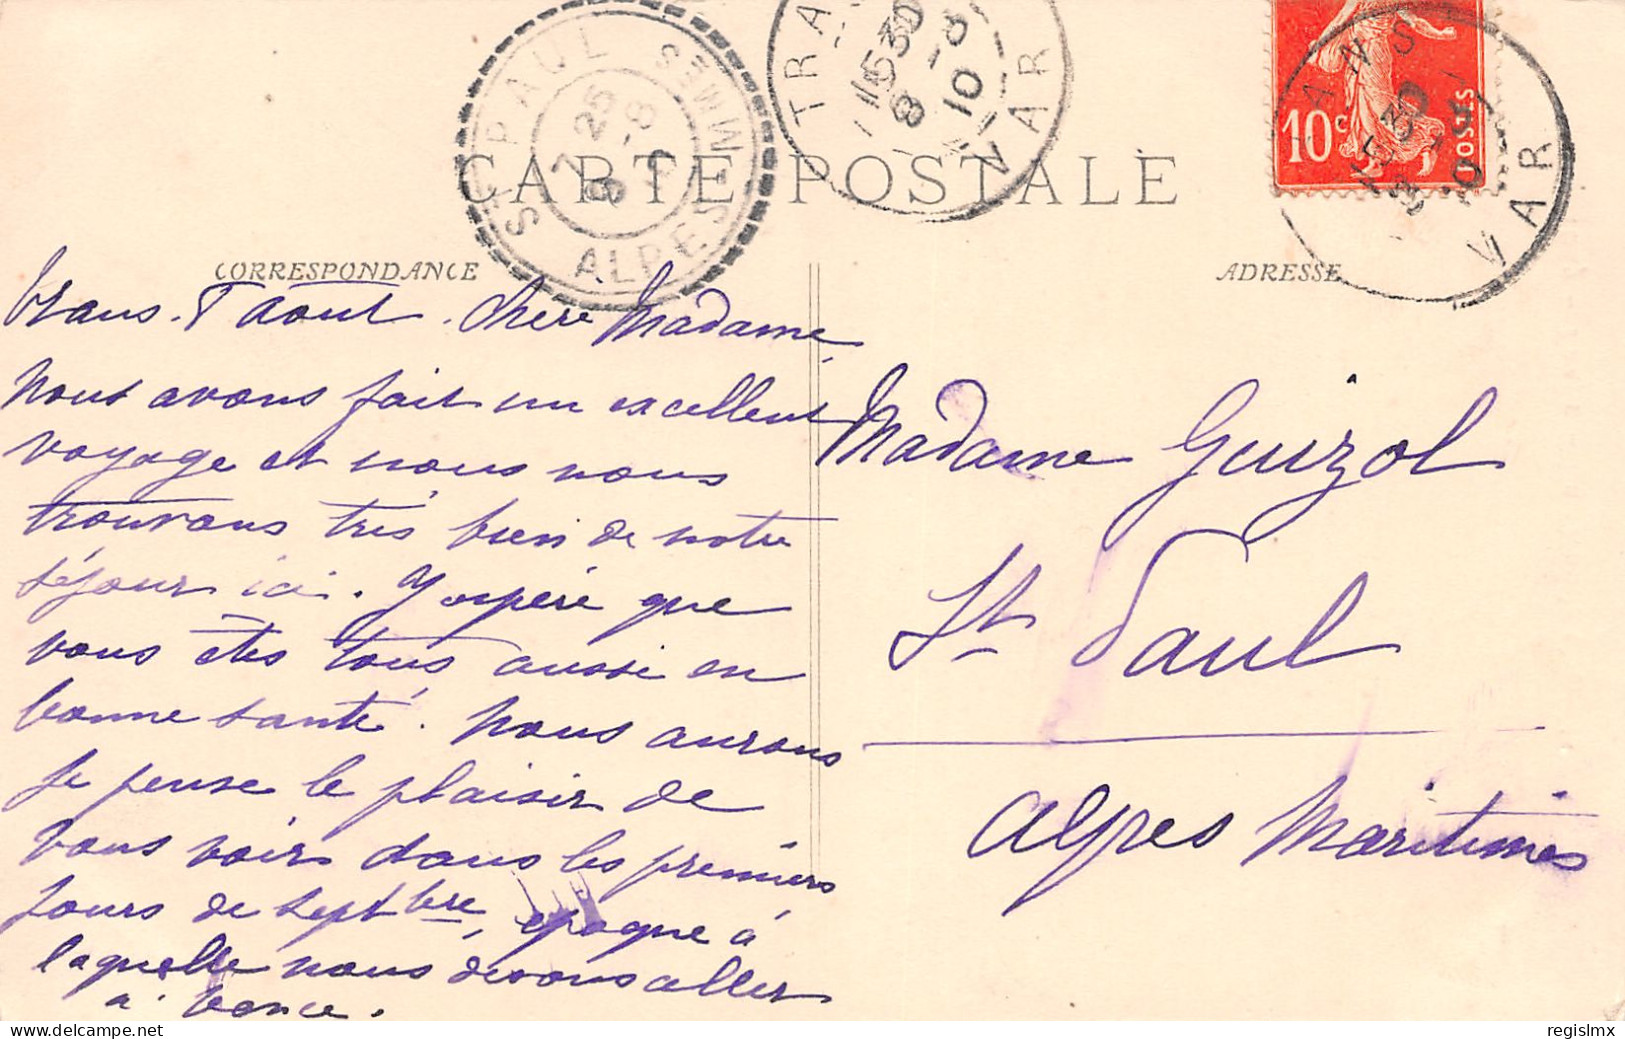 ST PAUL
ALPES MMES
7 25
8 - 8
10
TRANS
VAR
15 30
8 - 8
10
10c
POSTES
TRANS
VAR
15 30
10
CARTE POSTALE
CORRESPONDANCE
ADRESSE
Trans. 8 aout. Chère Madame,
Nous avons fait un excellent
voyage et nous nous
trouvons très bien de notre
séjour ici. J'espère que
vous êtes tous aussi en
bonne santé. Nous aurons
je pense le plaisir de
vous voir dans les premiers
jours de septbre, epoque à
laquelle nous devons aller
à Vence.
Madame Guizol
St Paul
Alpes Maritimes
regislmx